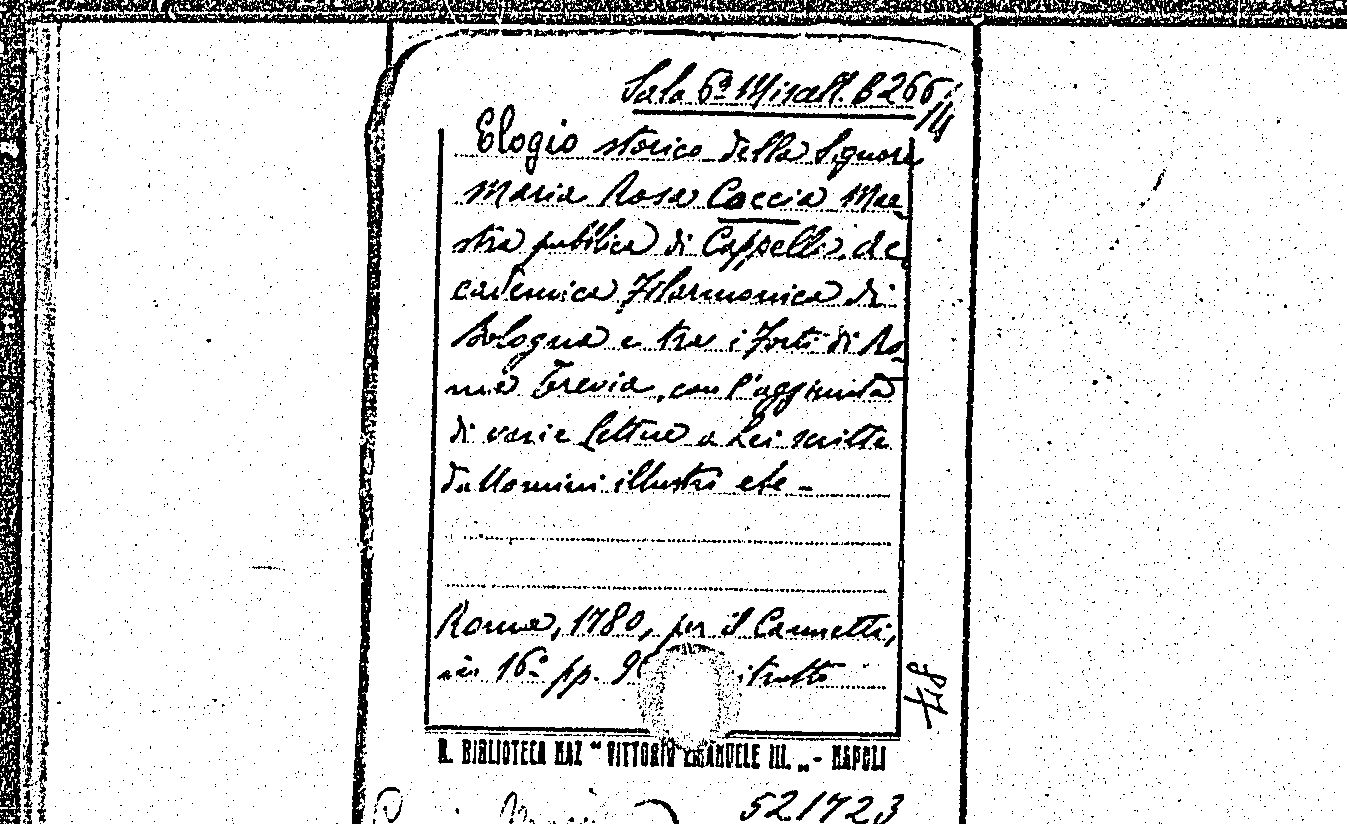 Sala 6ª Miscell. B 266
14
Elogio storico della Signora
Maria Rosa Coccia Mae-
stra pubblica di Cappella, Ac
cademica Filarmonica di
Bologna e tra i Forti di Ro-
ma Trevia, con l'aggiunta
di varie Lettere a Lei scritte
da Uomini illustri etc -
Roma, 1780, per il Cannetti,
in 16º pp. 9 itratto
48
R. BIBLIOTECA NAZ " VITTORIO EMANUELE III. „ - NAPOLI
521723